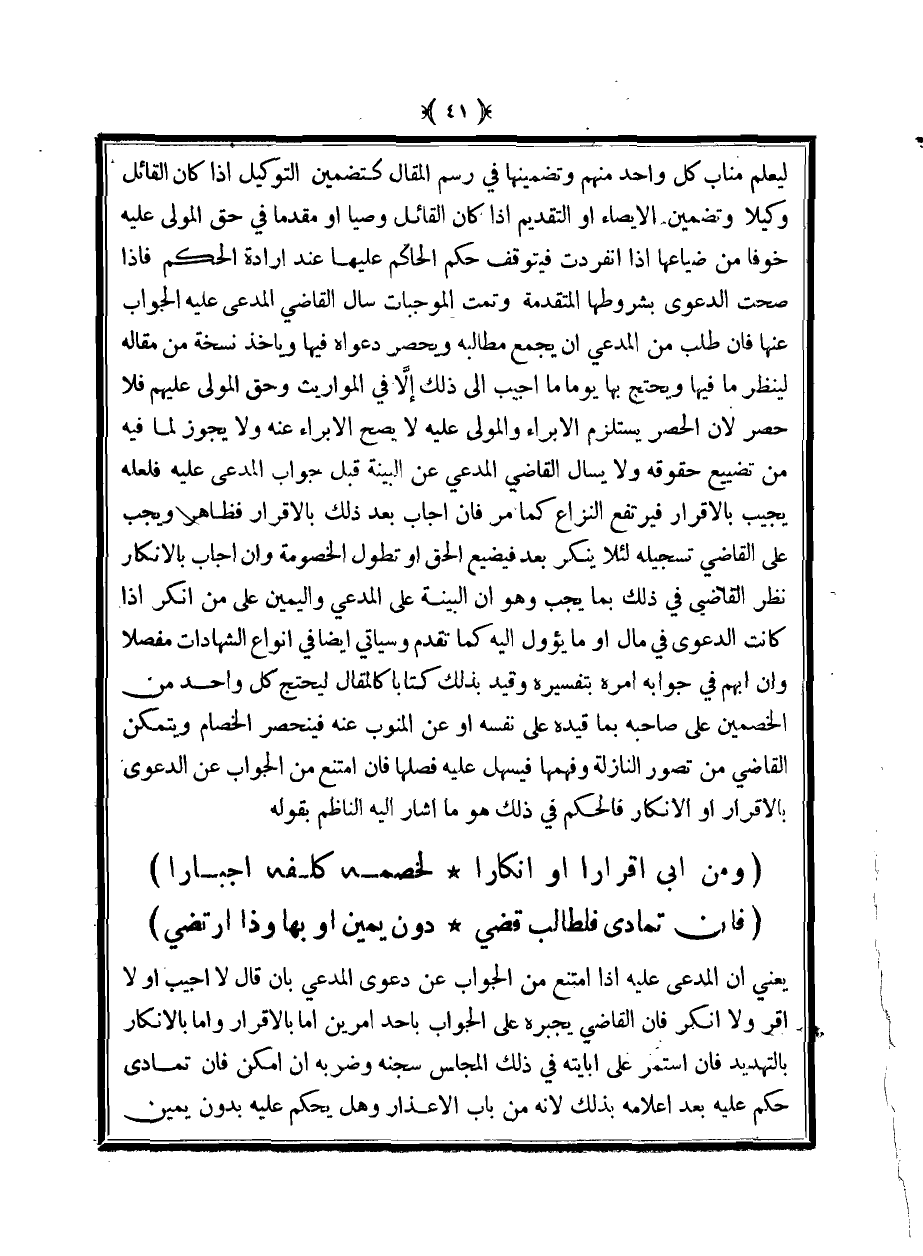 ﴿ ٤١ ﴾
ليعلم مناب كل واحد منهم وتضمينها في رسم المقال كتضمين التوكيل اذا كان القائل
وكيلا وتضمين الايصاء او التقديم اذا كان القائل وصيا او مقدما في حق المولى عليه
خوفا من ضياعها اذا انفردت فيتوقف حكم الحاكم عليها عند ارادة الحكم فاذا
صحت الدعوى بشروطها المتقدمة وتمت الموجبات سال القاضي المدعى عليه الجواب
عنها فان طلب من المدعي ان يجمع مطالبه ويحصر دعواه فيها وياخذ نسخة من مقاله
لينظر ما فيها ويحتج بها يوما ما اجيب الى ذلك إلَّا في المواريث وحق المولى عليهم فلا
حصر لان الحصر يستلزم الابراء والمولى عليه لا يصح الابراء عنه ولا يجوز لما فيه
من تضييع حقوقه ولا يسال القاضي المدعي عن البينة قبل جواب المدعى عليه فلعله
يجيب بالاقرار فيرتفع النزاع كما مر فان اجاب بعد ذلك بالاقرار فظاهر ويجب
على القاضي تسجيله لئلا ينكر بعد فيضيع الحق او تطول الخصومة وان اجاب بالانكار
نظر القاضي في ذلك بما يجب وهو ان البينة على المدعي واليمين على من انكر اذا
كانت الدعوى في مال او ما يؤول اليه كما تقدم وسياتي ايضا في انواع الشهادات مفصلا
وان ابهم في جوابه امره بتفسيره وقيد بذلك كتابا كالمقال ليحتج كل واحد من
الخصمين على صاحبه بما قيده على نفسه او عن المنوب عنه فينحصر الخصام ويتمكن
القاضي من تصور النازلة وفهمها فيسهل عليه فصلها فان امتنع من الجواب عن الدعوى
بالاقرار او الانكار فالحكم في ذلك هو ما اشار اليه الناظم بقوله
(ومن ابى اقرارا او انكارا * لخصمه كلفه اجبارا)
(فان تمادى فلطالب قضي * دون يمين او بها وذا ارتضي)
يعني ان المدعى عليه اذا امتنع من الجواب عن دعوى المدعي بان قال لا اجيب او لا
اقر ولا انكر فان القاضي يجبره على الجواب باحد امرين اما بالاقرار واما بالانكار
بالتهديد فان استمر على ابايته في ذلك المجلس سجنه وضربه ان امكن فان تمادى
حكم عليه بعد اعلامه بذلك لانه من باب الاعذار وهل يحكم عليه بدون يمين